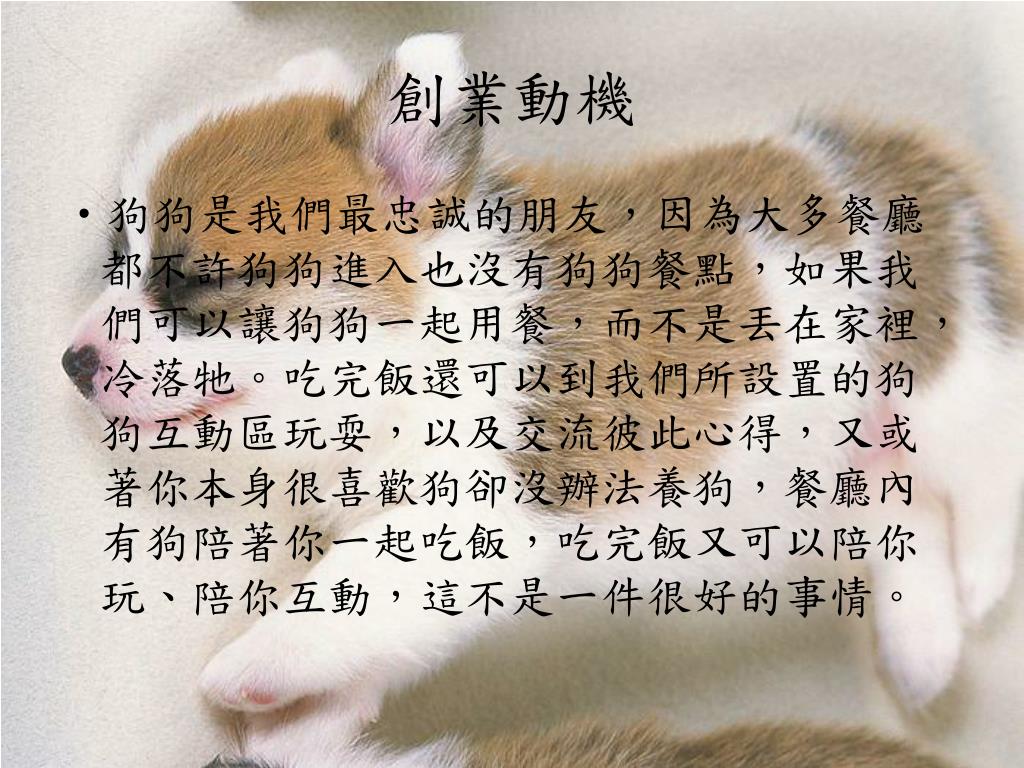 創業動機
• 狗狗是我們最忠誠的朋友，因為大多餐廳
都不許狗狗進入也沒有狗狗餐點，如果我
們可以讓狗狗一起用餐，而不是丟在家裡，
冷落牠。吃完飯還可以到我們所設置的狗
狗互動區玩耍，以及交流彼此心得，又或
著你本身很喜歡狗卻沒辦法養狗，餐廳內
有狗陪著你一起吃飯，吃完飯又可以陪你
玩、陪你互動，這不是一件很好的事情。